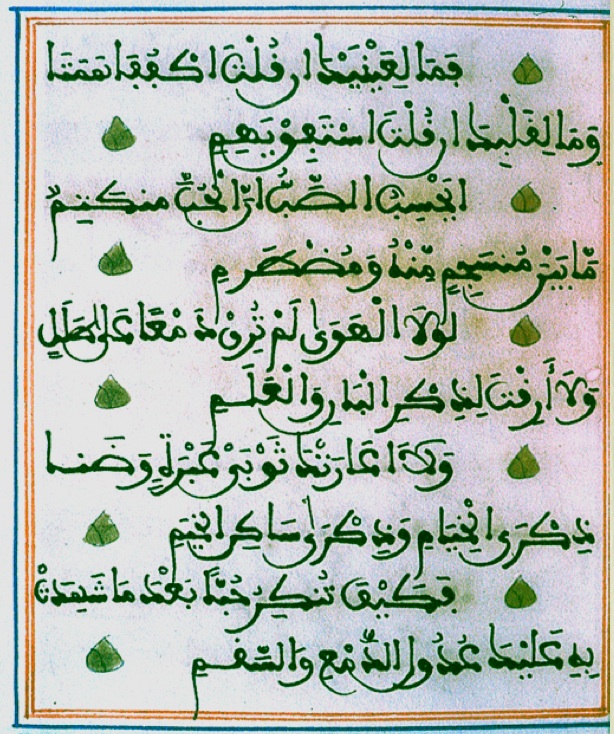 فَمَا لِعَيْنَيْكَ ان قُلْتَ اكْفُفَا هَمَتَا
وَمَا لِقَلْبِكَ ان قُلْتَ اسْتَفِقْ يَهِمِ
ايَحْسِبُ الصَّبُّ انَّ الْحُبَّ مُنكَتِمٌ
مَّا بَيْنَ مُنسَجِمٍ مِّنْهُ وَمُضْطَرِمِ
لَوْلَا الْهَوَى لَمْ تُرِقْ دَمْعًا عَلَى طَلَلٍ
وَلَا أَرِقْتَ لِذِكْرِ الْبَانِ وَالْعَلَمِ
وَلَا اعَارَتْكَ ثَوْبَيْ عَبْرَةٍ وَضَنــا
ذِكْرَى الْخِيَامِ وَذِكْرَى سَاكِنِ الْخِيَمِ
فَكَيْفَ تُنكِرُ حُبًّا بَعْدَ مَا شَهِدَتْ
بِهِ عَلَيْكَ عُدُولُ الدَّمْعِ وَالسَّقَمِ